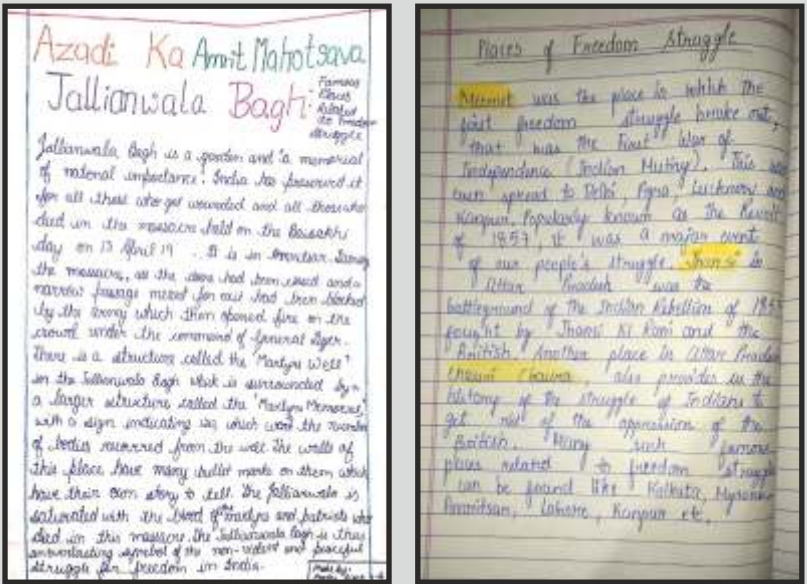 Azadi Ka Amrit Mahotsava
Jallianwala Bagh:
Famous
Places
Related
to Freedom
struggle
Jallianwala Bagh is a garden and a memorial
of national importance. India has preserved it
for all those who got wounded and all those who
died in the massacre held on the Baisakhi
day on 13 April 19 . It is in Amritsar.
the massacre, as the doors had been closed and a
narrow passage meant for exit had been blocked
by the army which then opened fire on the
crowd under the command of General Dyer.
There is a structure called the "Martyrs Well"
in the Jallianwala Bagh which is surrounded by
a larger structure called the 'Martyrs Memorial'
with a sign indicating which were the number
of bodies recovered from the well. The walls of
this place have many bullet marks on them which
have their own story to tell. The Jallianwala is
saturated with the blood of the martyrs and patriots who
died in this massacre. The Jallianwala Bagh is thus
an everlasting symbol of the non-violent and peaceful
struggle for freedom in India.
Made by:
Places of Freedom Struggle
Meerut was the place in which the
first freedom struggle broke out,
that was the First War of
Independence (Indian Mutiny). This
even spread to Delhi, Agra, Lucknow and
Kanpur. Popularly known as the Revolt
of 1857, it was a major event
of our people's struggle. Jhansi in
Uttar Pradesh was the
battleground of the Indian Rebellion of 185
fought by Jhansi Ki Rani and the
British. Another place in Uttar Pradesh
Chauri Chaura, also provides in the
history of the struggle of Indians to
get rid of the oppression of the
British. Many such famous
places related to freedom struggle
can be found like Kolkata,
Amritsar, Lahore, Kanpur etc.